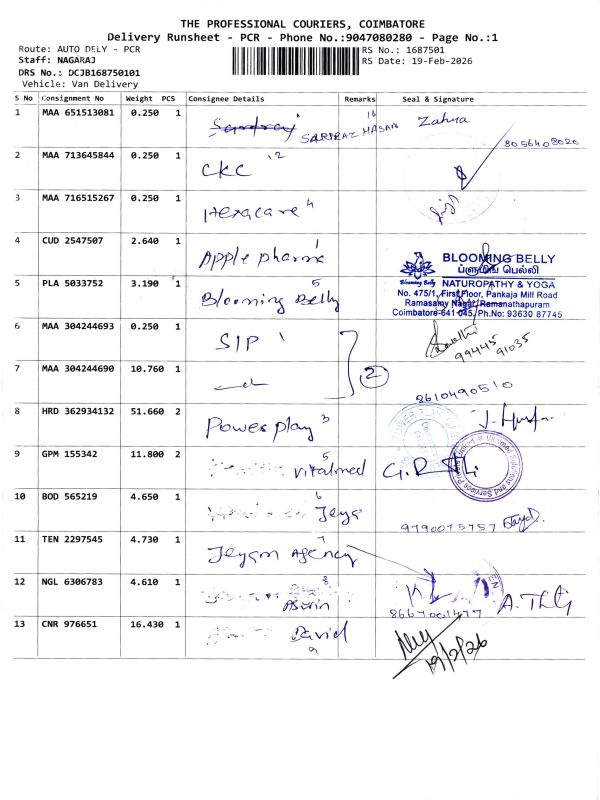 THE PROFESSIONAL COURIERS, COIMBATORE
Delivery Runsheet - PCR - Phone No.:9047080280 - Page No.:1
Route: AUTO DELY - PCR
RS No.: 1687501
Staff: NAGARAJ
RS Date: 19-Feb-2026
DRS No.: DCJB168750101
Vehicle: Van Delivery
S No Consignment No Weight PCS Consignee Details Remarks Seal & Signature
1 MAA 651513081 0.250 1 SARFRAZ HASAN 16 Zahra
8056408020
2 MAA 713645844 0.250 1 CKC 12
3 MAA 716515267 0.250 1 Hexacare 4
4 CUD 2547507 2.640 1 Apple pharma 1
BLOOMING BELLY
ப்ளூமிங் பெல்லி
Blooming Belly NATUROPATHY & YOGA
No. 475/1, First Floor, Pankaja Mill Road
Ramasamy Nagar, Ramanathapuram
Coimbatore-641 045. Ph.No: 93630 87745
5 PLA 5033752 3.190 1 Blooming Belly 5
6 MAA 304244693 0.250 1 SIP 1
99445 91035
2
7 MAA 304244690 10.760 1
8610490510
8 HRD 362934132 51.660 2 Power play 3
9 GPM 155342 11.800 2 Vitalmed 5
Vitalmed Solutions and Services Private Limited
10 BOD 565219 4.650 1 Jeya 6
9790075757
11 TEN 2297545 4.730 1 Jeyam Agency 7
12 NGL 6306783 4.610 1 8
8667001477
13 CNR 976651 16.430 1 David 9
19/2/26